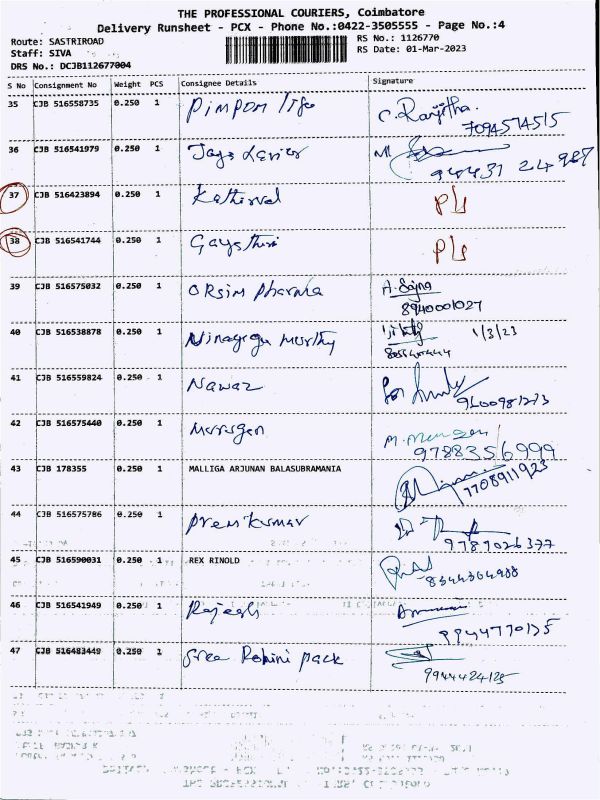 THE PROFESSIONAL COURIERS, Coimbatore
Delivery Runsheet - PCX - Phone No.:0422-3505555 - Page No.:4
Route: SASTRIROAD
RS No.: 1126770
Staff: SIVA
RS Date: 01-Mar-2023
DRS No.: DCJB112677004
S No Consignment No Weight PCS Consignee Details Signature
35 CJB 516558735 0.250 1 Pimpom life C. Ranjitha.
7094574515
36 CJB 516541979 0.250 1
37 CJB 516423894 0.250 1 Kathirvel
38 CJB 516541744 0.250 1 Gayathiri
39 CJB 516575032 0.250 1 Orsim Pharma A. Sajna
8940001027
40 CJB 516538878 0.250 1 Murthy 1/3/23
41 CJB 516559824 0.250 1 Nawaz
9600981273
42 CJB 516575440 0.250 1 Murugan M. Murugan
9788356999
43 CJB 178355 0.250 1 MALLIGA ARJUNAN BALASUBRAMANIA
7708911923
44 CJB 516575786 0.250 1 Premkumar
9787026377
45 CJB 516590031 0.250 1 REX RINOLD
8344364988
46 CJB 516541949 0.250 1 Rajesh
9944770125
47 CJB 516483449 0.250 1 Sree Rohini pack
9944424125